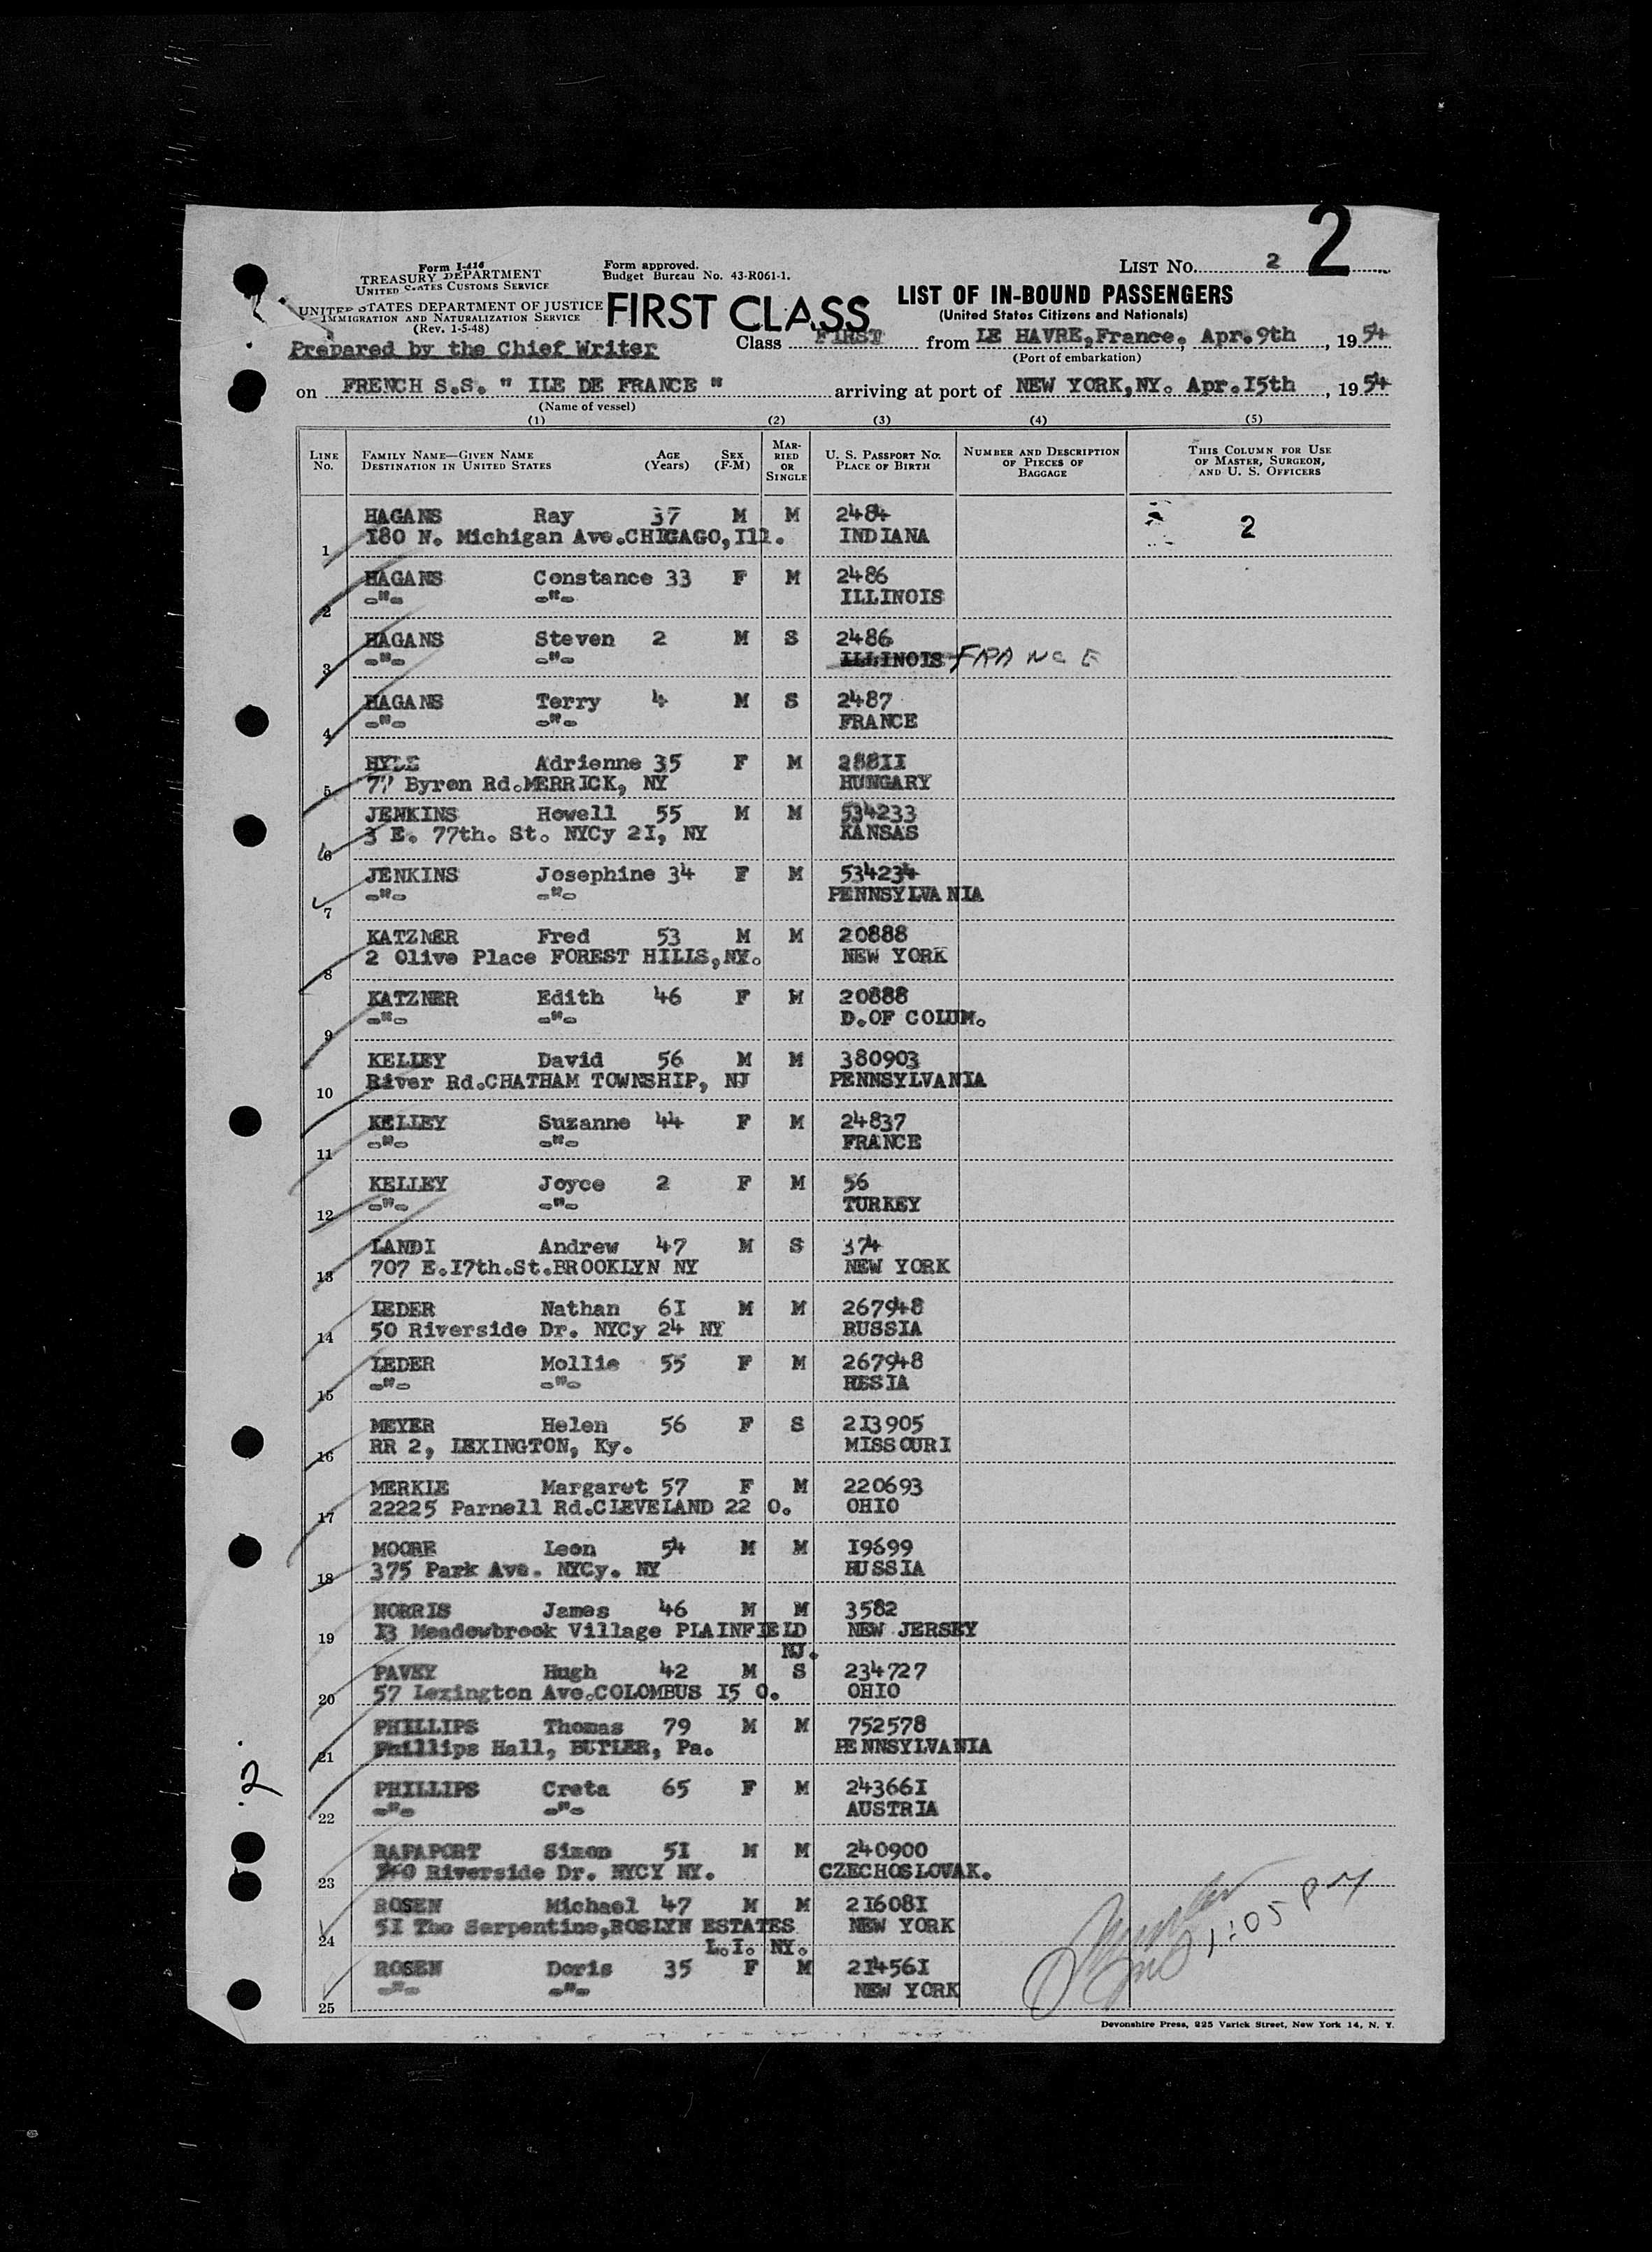 2
Form I-416
TREASURY DEPARTMENT
UNITED STATES CUSTOMS SERVICE
UNITED STATES DEPARTMENT OF JUSTICE
IMMIGRATION AND NATURALIZATION SERVICE
(Rev. 1-5-48)
Form approved.
Budget Bureau No. 43-R061-1.
LIST No. 2
FIRST CLASS
LIST OF IN-BOUND PASSENGERS
(United States Citizens and Nationals)
Prepared by the Chief Writer
Class FIRST from LE HAVRE,France, Apr.9th, 1954
(Port of embarkation)
on FRENCH S.S. " ILE DE FRANCE " arriving at port of NEW YORK,NY. Apr.I5th, 1954
(Name of vessel)
(1) (2) (3) (4) (5)
LINE No. FAMILY NAME—GIVEN NAME DESTINATION IN UNITED STATES AGE (Years) SEX (F-M) MARRIED OR SINGLE U. S. PASSPORT No. PLACE OF BIRTH NUMBER AND DESCRIPTION OF PIECES OF BAGGAGE THIS COLUMN FOR USE OF MASTER, SURGEON, AND U. S. OFFICERS
HAGANS Ray 37 M M 2484
1 I80 N. Michigan Ave.CHICAGO,Ill. INDIANA 2
HAGANS Constance 33 F M 2486
2 -"- -"- ILLINOIS
HAGANS Steven 2 M S 2486
3 -"- -"- ILLINOIS FRANCE
HAGANS Terry 4 M S 2487
4 -"- -"- FRANCE
HYDE Adrienne 35 F M 288II
5 77 Byron Rd.MERRICK, NY HUNGARY
JENKINS Howell 55 M M 534233
6 3 E. 77th. St. NYCy 2I, NY KANSAS
JENKINS Josephine 34 F M 534234
7 -"- -"- PENNSYLVANIA
KATZNER Fred 53 M M 20888
8 2 Olive Place FOREST HILLS,NY. NEW YORK
KATZNER Edith 46 F M 20888
9 -"- -"- D.OF COLUM.
KELLEY David 56 M M 380903
10 River Rd.CHATHAM TOWNSHIP, NJ PENNSYLVANIA
KELLEY Suzanne 44 F M 24837
11 -"- -"- FRANCE
KELLEY Joyce 2 F M 56
12 -"- -"- TURKEY
LANDI Andrew 47 M S 374
13 707 E.I7th.St.BROOKLYN NY NEW YORK
LEDER Nathan 6I M M 267948
14 50 Riverside Dr. NYCy 24 NY RUSSIA
LEDER Mollie 55 F M 267948
15 -"- -"- RUSIA
MEYER Helen 56 F S 2I3905
16 RR 2, LEXINGTON, Ky. MISSOURI
MERKLE Margaret 57 F M 220693
17 22225 Parnell Rd.CLEVELAND 22 O. OHIO
MOORE Leon 54 M M I9699
18 375 Park Ave. NYCy. NY RUSSIA
NORRIS James 46 M M 3582
19 I3 Meadowbrook Village PLAINFIELD NEW JERSEY
NJ.
PAVEY Hugh 42 M S 234727
20 57 Lexington Ave.COLOMBUS I5 O. OHIO
PHILLIPS Thomas 79 M M 752578
21 Phillips Hall, BUTLER, Pa. PENNSYLVANIA
PHILLIPS Creta 65 F M 24366I
22 -"- -"- AUSTRIA
2
RAPAPORT Simon 5I M M 240900
23 Riverside Dr. NYCY NY. CZECHOSLOVAK.
ROSEN Michael 47 M M 2I608I
24 5I The Serpentine,ROSLYN ESTATES NEW YORK
L.I. NY.
1:05 PM
ROSEN Doris 35 F M 2I456I
25 -"- -"- NEW YORK
Devonshire Press, 225 Varick Street, New York 14, N. Y.